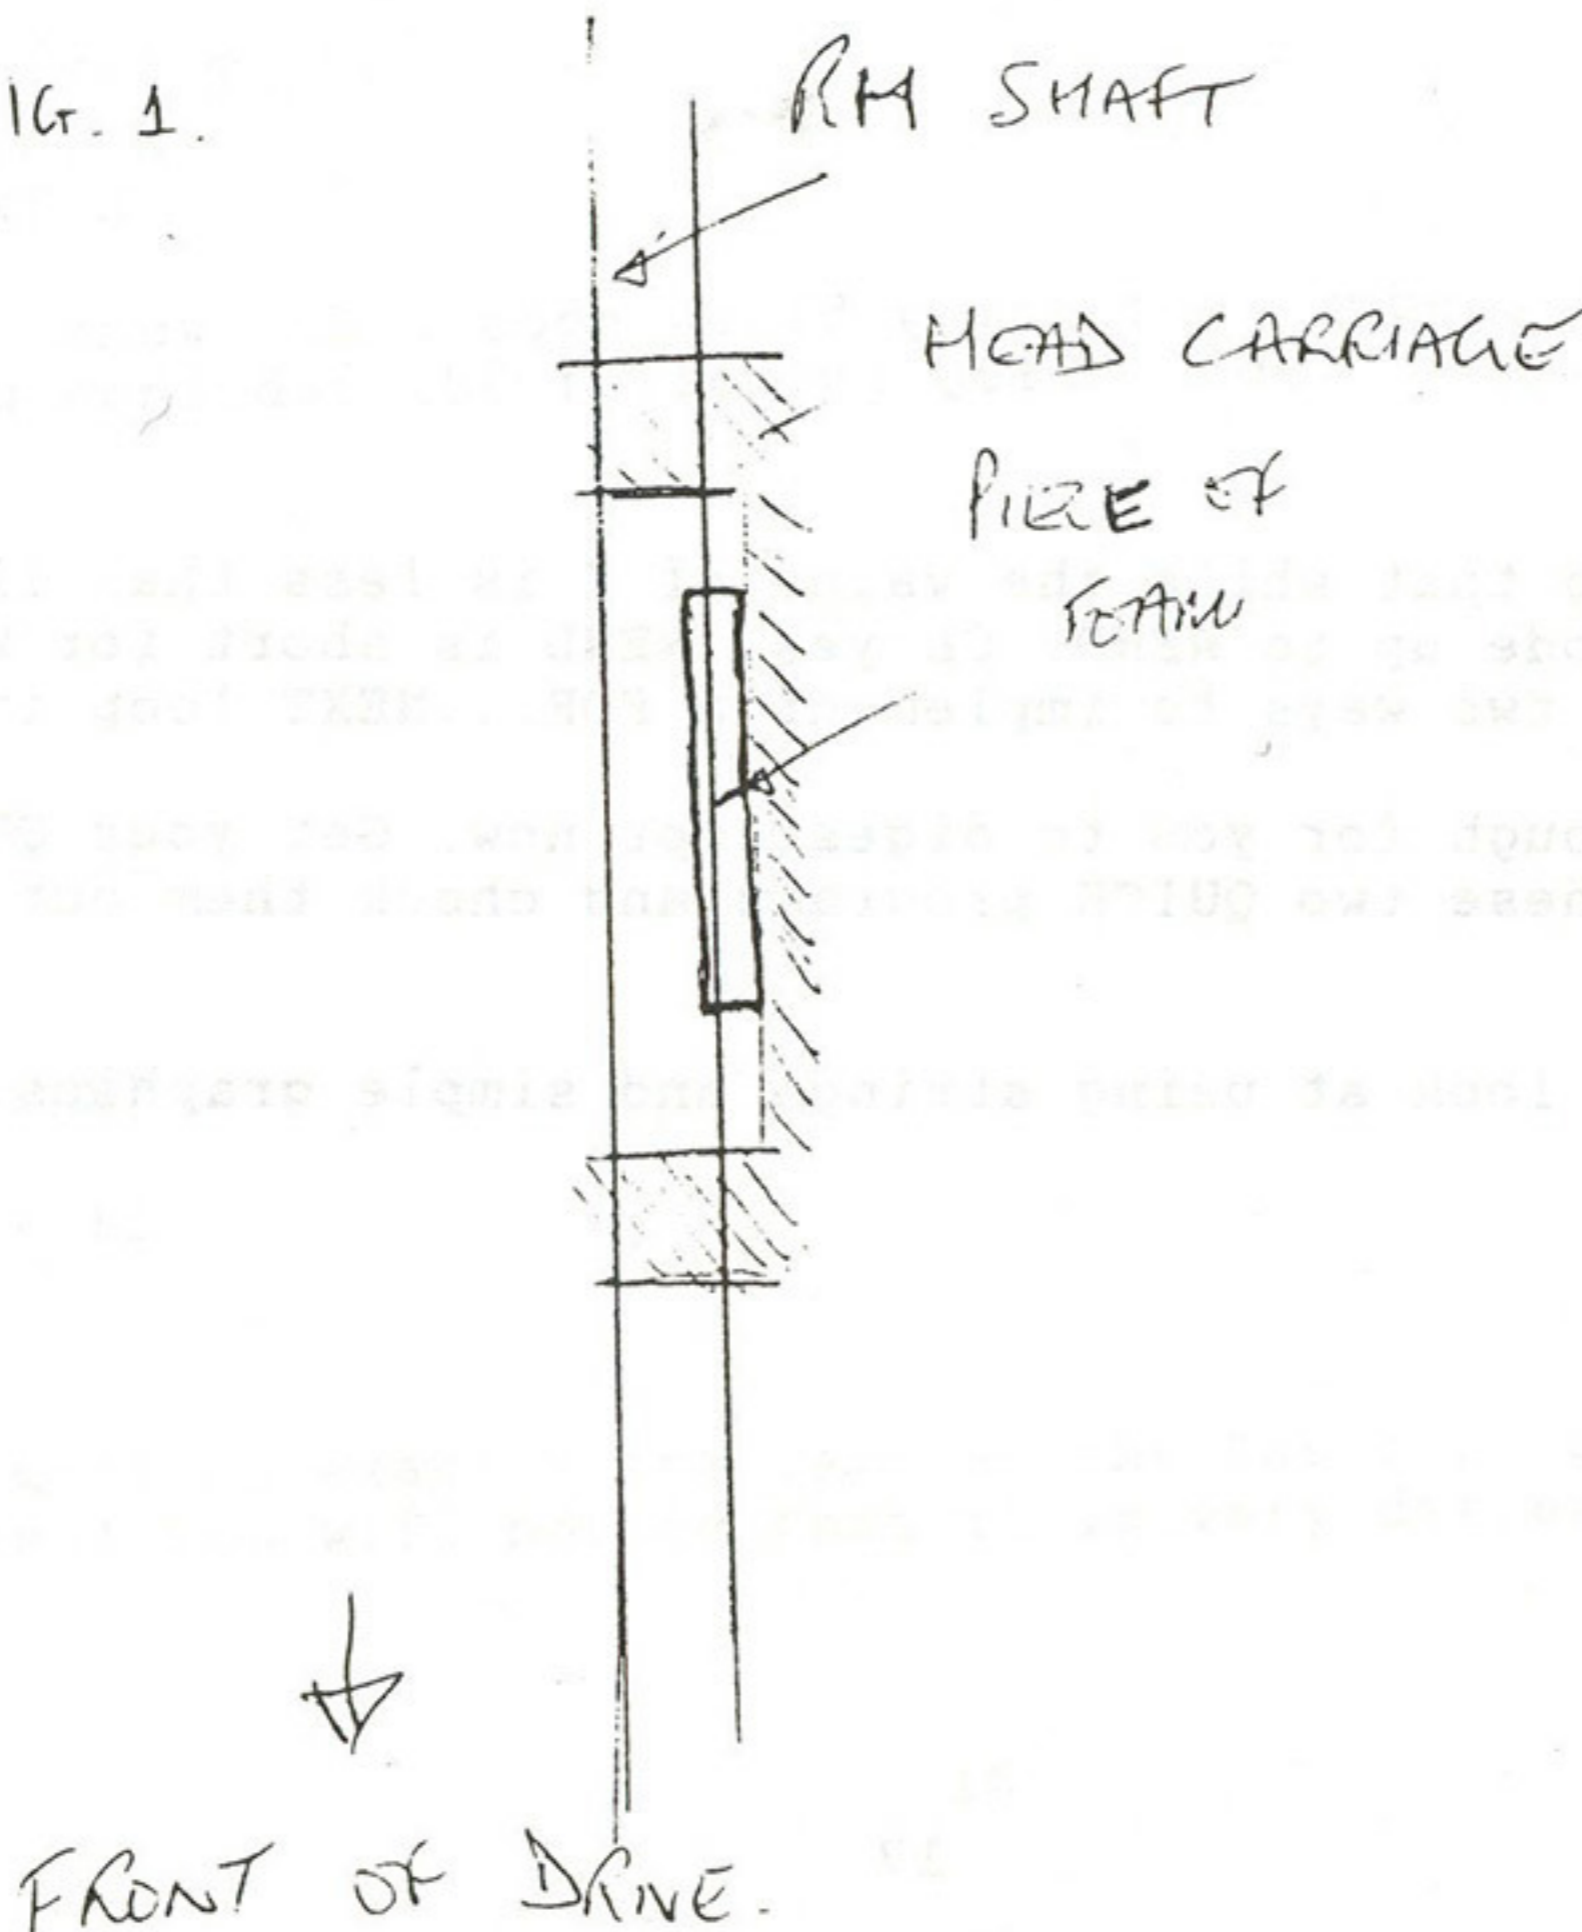 IG. 1.
RH SHAFT
HEAD CARRIAGE
PIECE OF
FOAM
FRONT OF DRIVE.